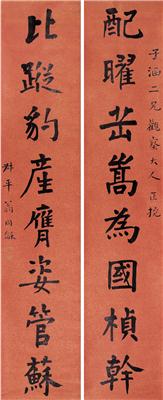 子涵二兄觀察大人
配曜岳嵩為國楨幹
比蹤豹產膺姿管蘇
叔平翁同龢